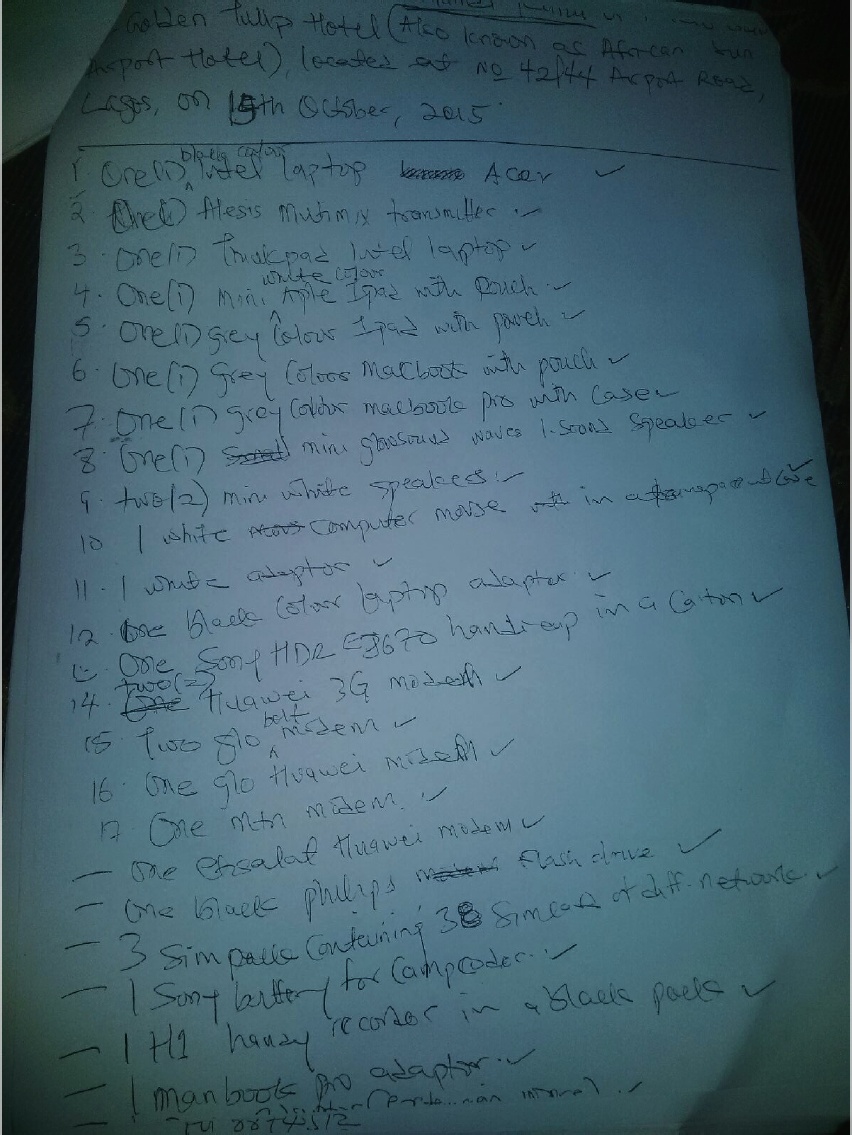 Golden Tulip Hotel (Also known as African Sun
Airport Hotel), located at No 42/44 Airport Road,
Lagos, on 15th October, 2015
black colour
1 One(1) Intel laptop Acer ✓
2 One(1) Alesis Multimix transmitter ✓
3. One(1) Thinkpad Intel laptop ✓
white color
4. One(1) mini Aple Ipad with Pouch ✓
5. One(1) grey Colour Ipad with pouch ✓
6. One(1) Grey Colour Macbook with pouch ✓
7. One(1) grey Colour macbook pro with Case ✓
8. One(1) mini waves Speaker ✓
9. two(2) mini white speakers ✓
10 1 white computer mouse in a transparent Case ✓
11. 1 white adaptor ✓
12 One black Colour laptop adapter ✓
13 One Sony HDR handicap in a Caton ✓
two(2)
14. Huawei 3G modem ✓
belt
15 Two glo modem ✓
16. One glo Huawei modem ✓
17 One Mtn modem. ✓
— One Etisalat Huawei modem ✓
— One black philips flash drive ✓
— 3 Sim packs Containing 38 Simcards of diff. network ✓
— 1 Sony battery for Campcoder ✓
— 1 H1 handy recorder in a black pack ✓
— 1 manbook pro adaptor ✓